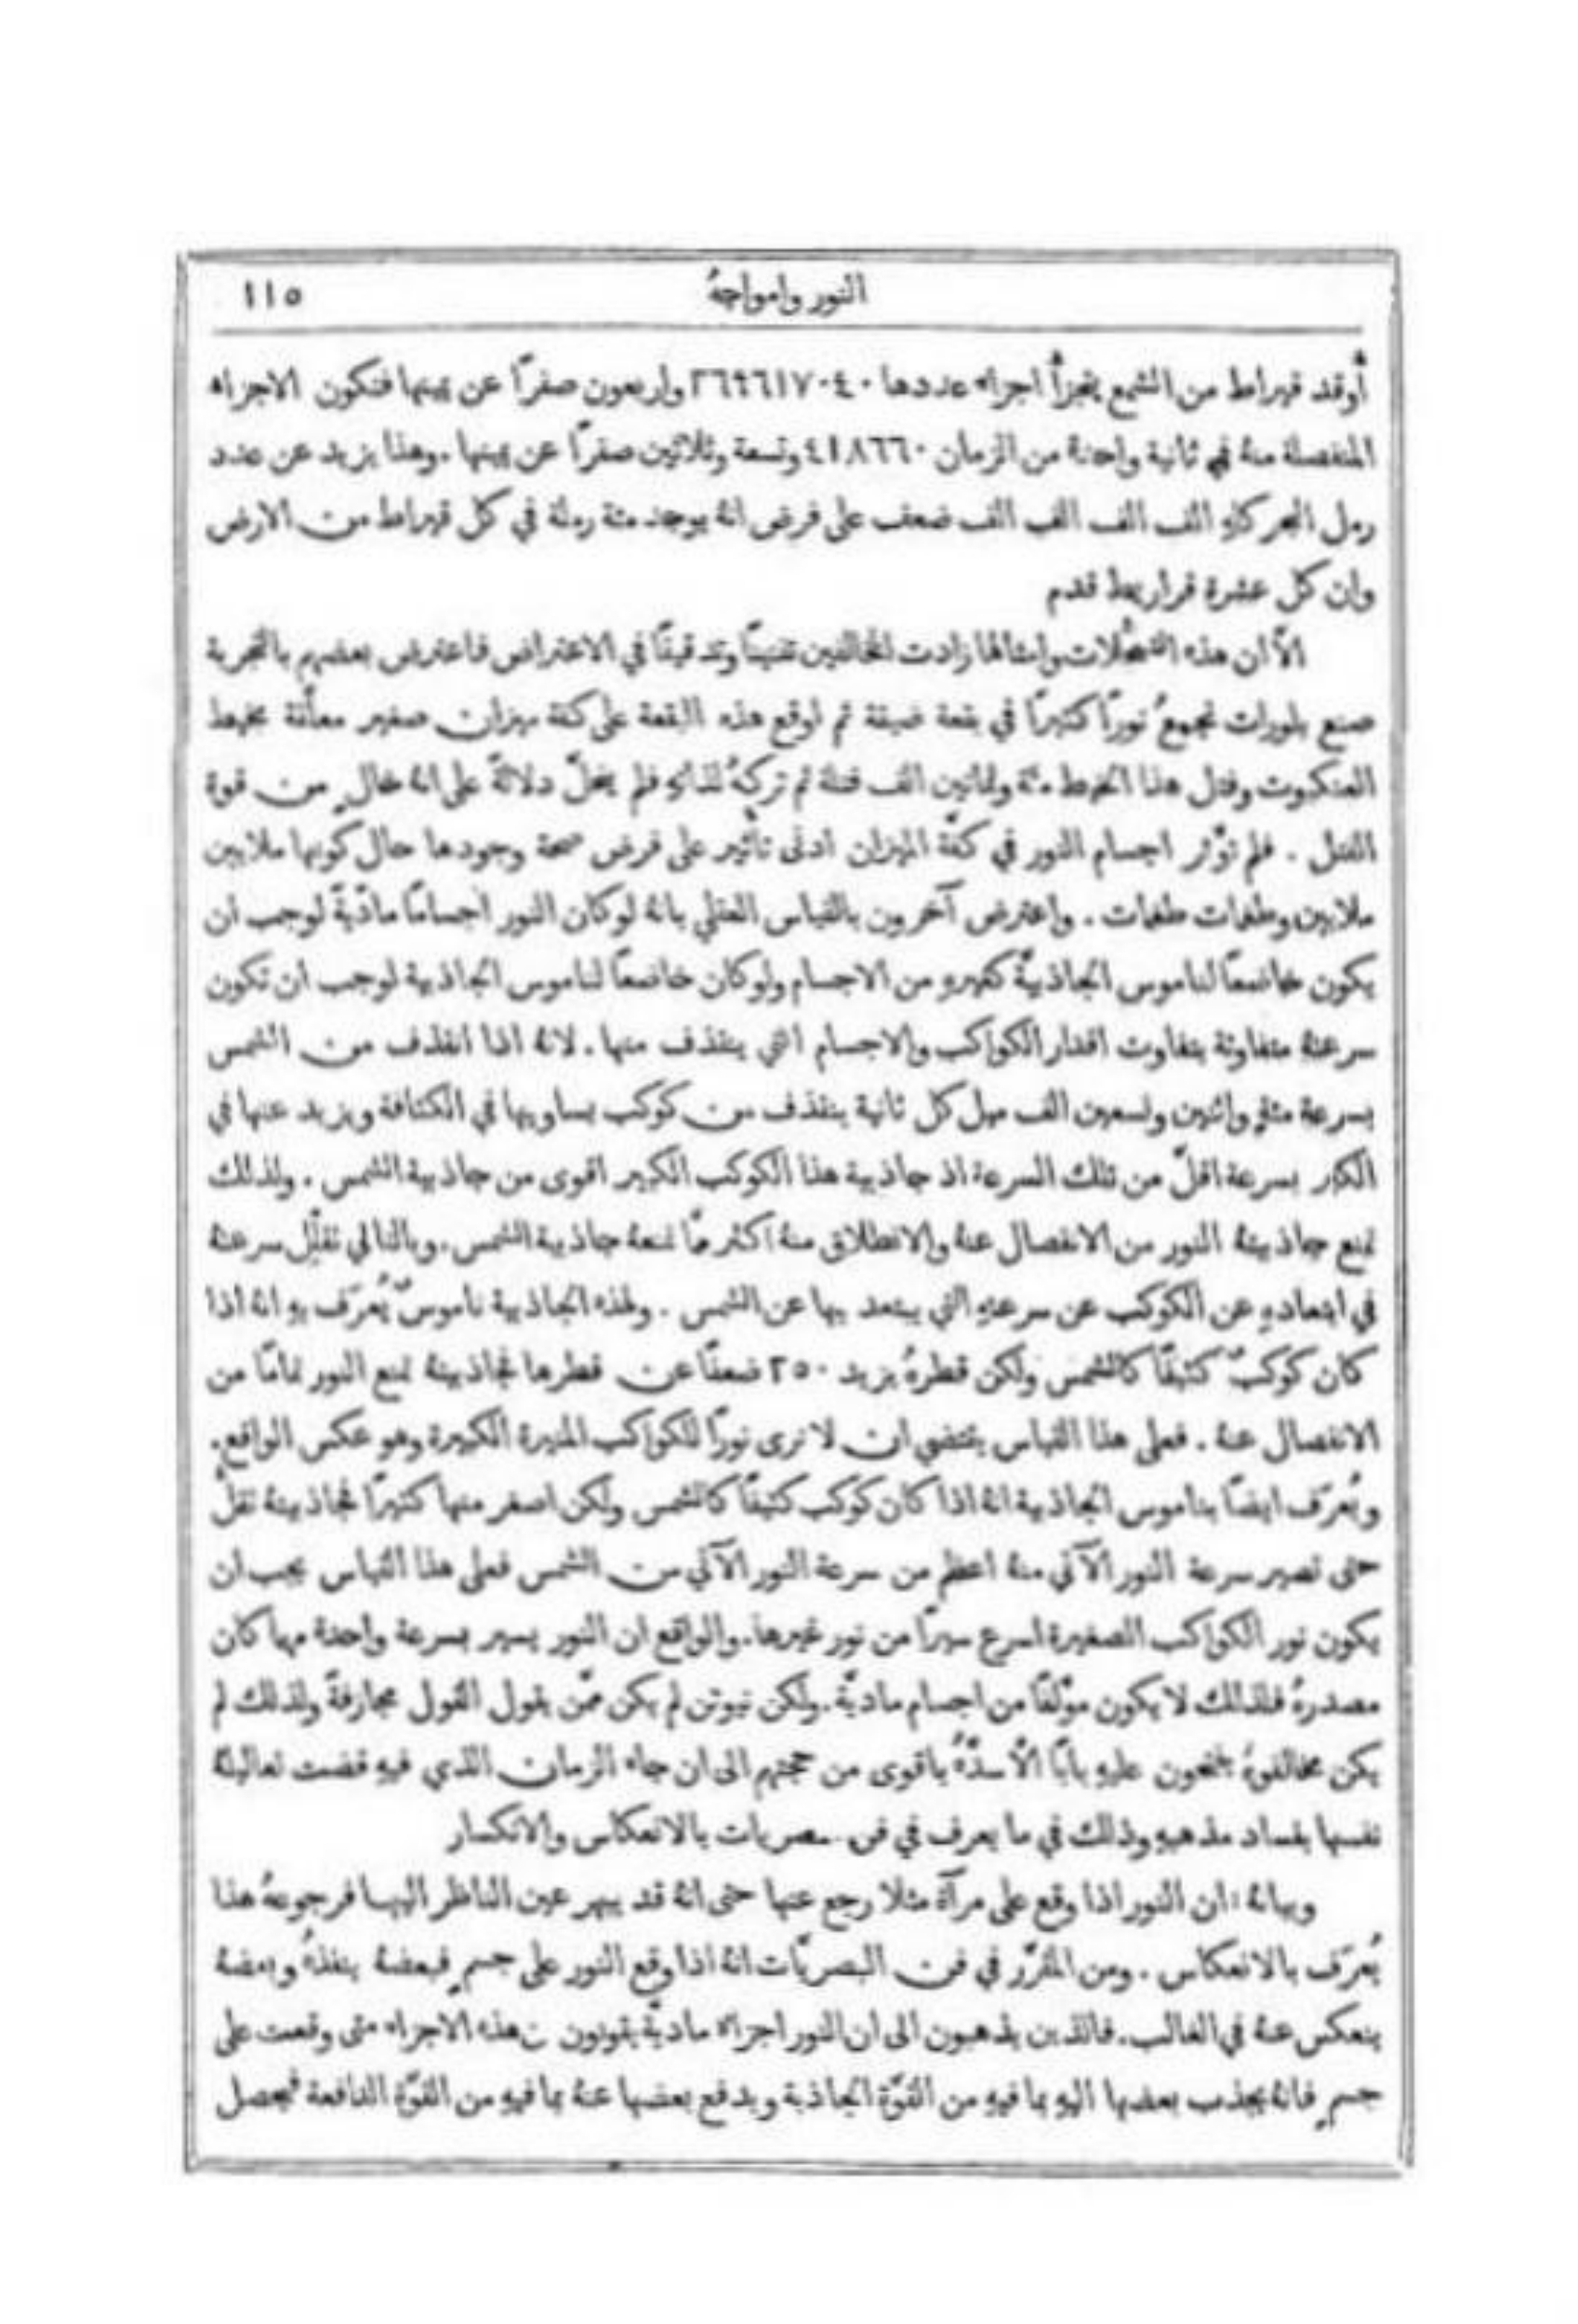 النور وامواجهُ ١١٥
أُوقد قيراط من الشمع يتجزأُ اجزاء عددها ٢٦٩٦١٧٠٤٠ واربعون صفرًا عن يمينها فتكون الاجزاء
المنفصلة منهُ في ثانية واحدة من الزمان ٤١٨٦٦٠ وتسعة وثلاثين صفرًا عن يمينها . وهذا يزيد عن عدد
رمل البحر كلهِ الف الف الف الف ضعف على فرض انهُ يوجد مئة رملة في كل قيراط من الارض
وان كل عشرة قراريط قدم
الَّا ان هذه التمحُّلات وامثالها زادت المخالفين تفنينًا وتدقيقًا في الاعتراض فاعترض بعضهم بالتجربة
صنع بلورات تجمعُ نورًا كثيرًا في بقعة ضيقة ثم اوقع هذه البقعة على كفة ميزان صغير معلَّقة بخيط
العنكبوت وفتل هذا الخيط مئة وثمانين الف فتلة ثم تركهُ لذاتهِ فلم ينحلّ دلالةً على انهُ خالٍ من قوة
الفتل . فلم تؤَثر اجسام النور في كفَّة الميزان ادنى تأثير على فرض صحة وجودها حال كونها ملايين
ملايين وطغمات طغمات . واعترض آخرون بالقياس العقلي بانهُ لو كان النور اجسامًا مادّيةً لوجب ان
يكون خاضعًا لناموس الجاذبيَّة كغيرهِ من الاجسام ولو كان خاضعًا لناموس الجاذبية لوجب ان تكون
سرعتهُ متفاوتة بتفاوت اقدار الكواكب والاجسام التي ينقذف منها . لانهُ اذا انقذف من الشمس
بسرعة مئةٍ واثنين وتسعين الف ميل كل ثانية ينقذف من كوكب يساويها في الكثافة ويزيد عنها في
الكبر بسرعة اقلّ من تلك السرعة اذ جاذبية هذا الكوكب الكبير اقوى من جاذبية الشمس . ولذلك
تمنع جاذبيتهُ النور من الانفصال عنهُ والانطلاق منهُ اكثر ممَّا تمنعهُ جاذبية الشمس . وبالتالي تقلِّل سرعتهُ
في ابتعادهِ عن الكوكب عن سرعتهِ التي يبتعد بها عن الشمس . ولهذه الجاذبية ناموسٌ يُعرَف بهِ انهُ اذا
كان كوكبٌ كثيفًا كالشمس ولكن قطرهُ يزيد ٢٥٠ ضعفًا عن قطرها فجاذبيتهُ تمنع النور تمامًا من
الانفصال عنهُ . فعلى هذا القياس يقتضي ان لا نرى نورًا للكواكب المنيرة الكبيرة وهو عكس الواقع .
ويُعرَف ايضًا بناموس الجاذبية انهُ اذا كان كوكب كثيفًا كالشمس ولكن اصغر منها كثيرًا فجاذبيتهُ تقلُّ
حتى تصير سرعة النور الآتي منهُ اعظم من سرعة النور الآتي من الشمس فعلى هذا القياس يجب ان
يكون نور الكواكب الصغيرة اسرع سيرًا من نور غيرها . والواقع ان النور يسير بسرعة واحدة مهما كان
مصدرهُ فلذلك لا يكون مؤَلَّفًا من اجسام مادية . ولكن نيوتن لم يكن ممَّن يقول القول مجازفةً ولذلك لم
يكن مخالفوهُ يفتحون عليهِ بابًا الَّا سدَّهُ باقوى من حجتهم الى ان جاء الزمان الذي فيهِ قضت تعاليلهُ
نفسها بفساد مذهبهِ وذلك في ما يعرف في فن بالانعكاس والانكسار
وبيانهُ : ان النور اذا وقع على مرآة مثلا رجع عنها حتى انهُ قد يبهر عين الناظر اليها فرجوعهُ هذا
يُعرَف بالانعكاس . ومن المقرَّر في فن البصريَّات انهُ اذا وقع النور على جسمٍ فبعضهُ ينفذهُ وبعضهُ
ينعكس عنهُ في الغالب . فالذين يذهبون الى ان النور اجزاءٌ ماديَّة يقولون هذه الاجزاء متى وقعت على
جسمٍ فانهُ يجذب بعضها اليهِ بما فيهِ من القوَّة الجاذبة ويدفع بعضها عنهُ بما فيهِ من القوَّة الدافعة فيحصل